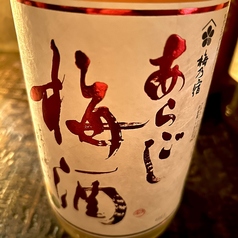 梅乃宿
あらごし
梅酒